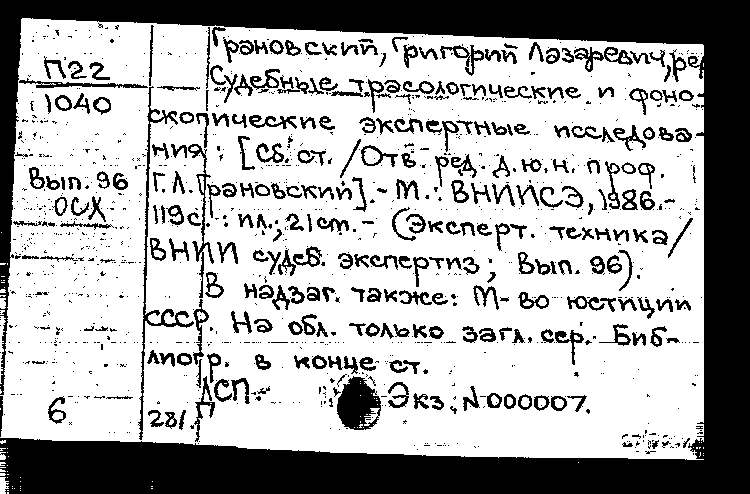 Грановский, Григорий Лазаревич, ре
П22
1040
Судебные трасологические и фоно-
скопические экспертные исследова-
ния : [Сб. ст. / Отв. ред. д.ю.н. проф.
Вып. 96
ОСХ
Г.Л. Грановский]. - М.: ВНИИСЭ, 1986. -
119с. : ил.; 21см. - (Эксперт. техника /
ВНИИ судеб. экспертиз; Вып. 96).
В надзаг. также: М-во юстиции
СССР. На обл. только загл. сер. Биб-
лиогр. в конце ст.
ДСП. Экз. N000007.
6